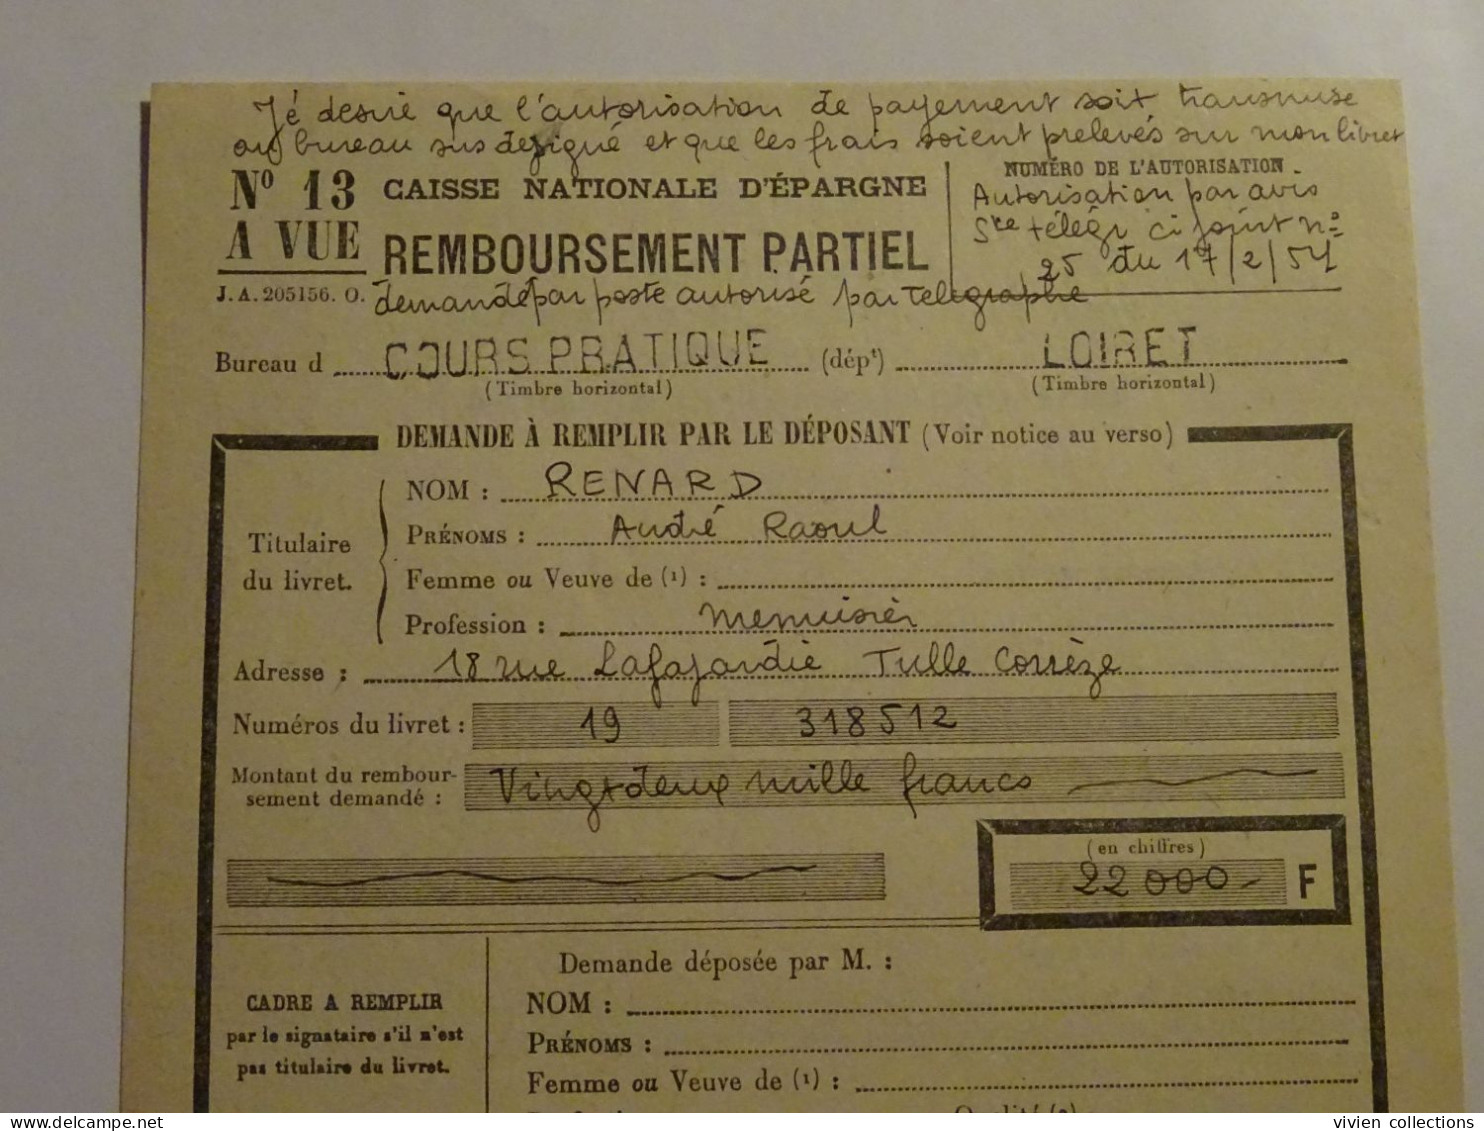 Jé desire que l'autorisation de payement soit transmise
au bureau sus designé et que les frais soient prelevés sur mon livret
No 13
A VUE
J.A. 205156. O.
CAISSE NATIONALE D'ÉPARGNE
REMBOURSEMENT PARTIEL
demandé par poste autorisé par telegraphe
NUMÉRO DE L'AUTORISATION
Autorisation par avis
Ste télégr ci joint no
25 du 17/2/54
Bureau d COURS PRATIQUE (dépt) LOIRET
(Timbre horizontal) (Timbre horizontal)
DEMANDE À REMPLIR PAR LE DÉPOSANT (Voir notice au verso)
Titulaire du livret.
NOM : RENARD
PRÉNOMS : André Raoul
Femme ou Veuve de (1) :
Profession : Menuisier
Adresse : 18 rue Lafajardie Tulle Corrèze
Numéros du livret : 19 318512
Montant du rembour-
sement demandé : Vingt deux mille francs
(en chiffres)
22 000 F
CADRE A REMPLIR
par le signataire s'il n'est
pas titulaire du livret.
Demande déposée par M. :
NOM :
PRÉNOMS :
Femme ou Veuve de (1) :
vivien collections